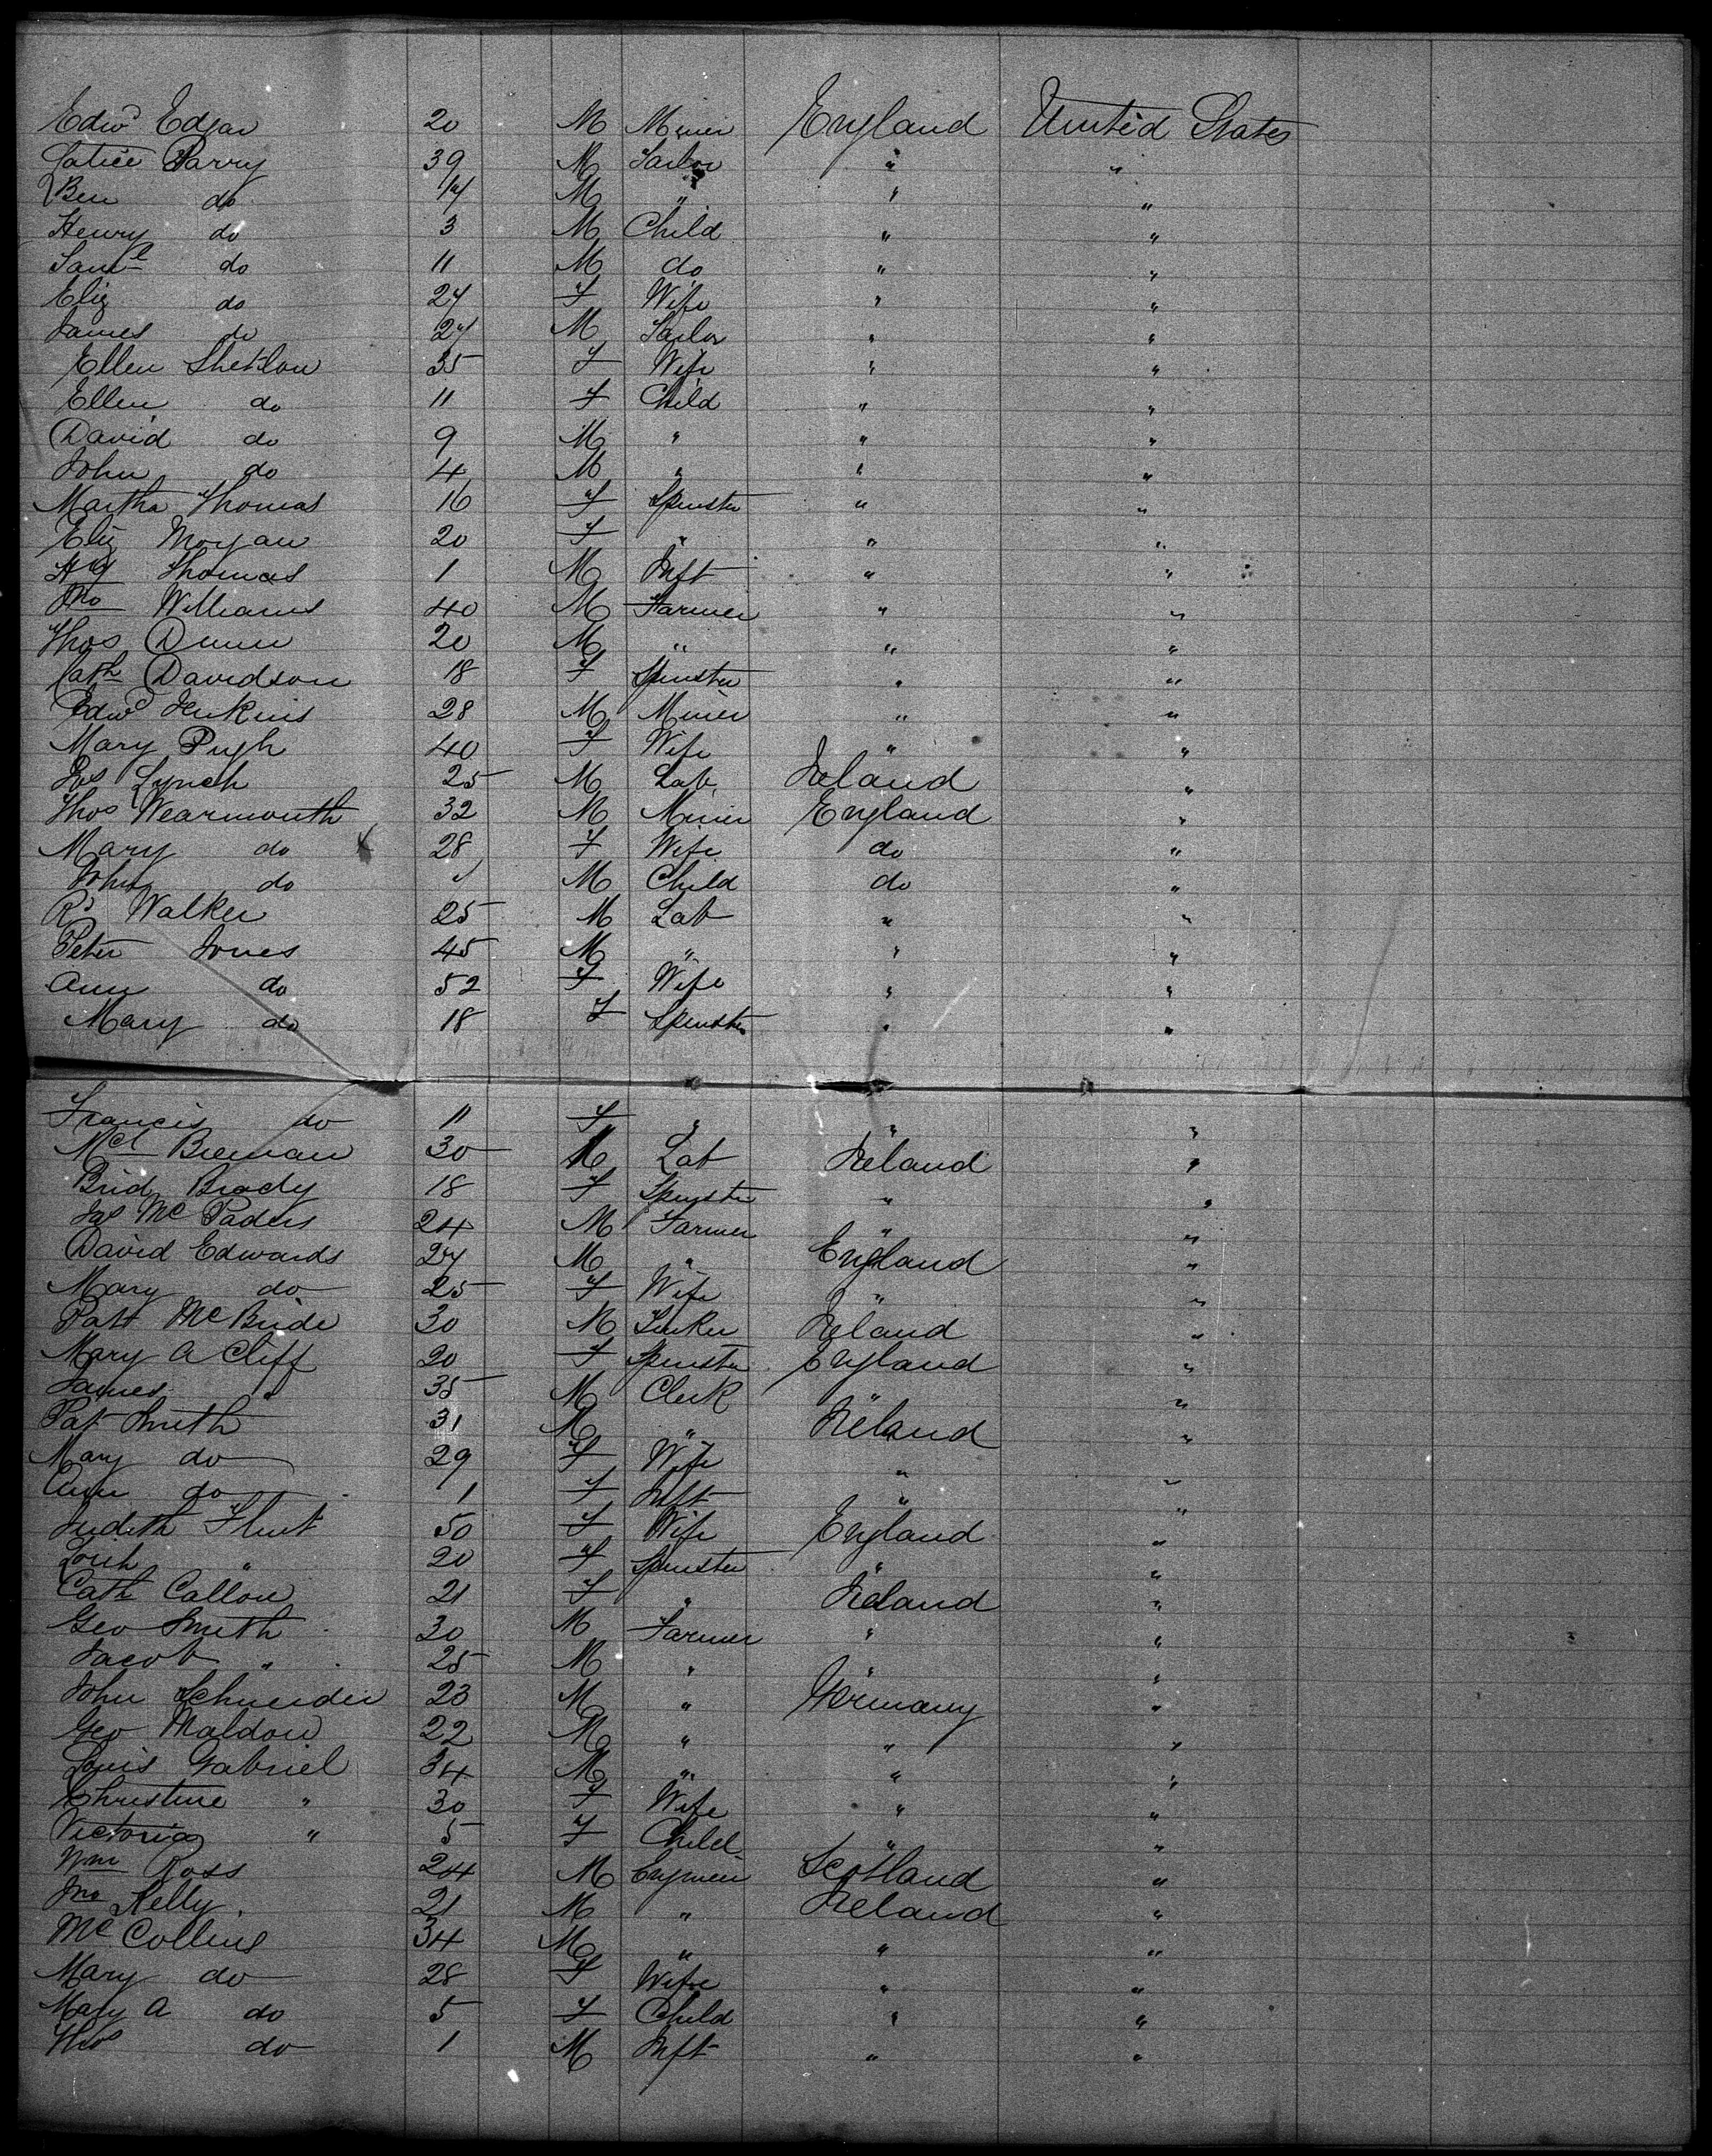 Edwd Edgar 20 M Miner England United States
Parry 39 M Tailor " "
Ben do 14 M " " "
Henry do 3 M Child " "
Saml do 11 M do " "
Eliz do 24 F Wife " "
James do 24 M Tailor " "
Ellen 35 F Wife " "
Ellen do 11 F Child " "
David do 9 M " " "
John do 4 M " " "
Martha Thomas 16 F Spinster " "
Eliz Morgan 20 F " " "
Hy Thomas 1 M Inft " "
Jno Williams 40 M Farmer " "
Thos Dunn 20 M " " "
Cath Davidson 18 F Spinster " "
Edwd Jenkins 28 M Miner " "
Mary Pugh 40 F Wife " "
Jos Lynch 25 M Lab Ireland "
Thos Wearmouth 32 M Miner England "
Mary do 28 F Wife do "
John do M Child do "
Rd Walker 25 M Lab " "
Peter Jones 45 M " " "
Ann do 52 F Wife " "
Mary do 18 F Spinster " "
Francis do 11 F " " "
Mcl Brennan 30 M Lab Ireland "
Brid Brady 18 F Spinster " "
Jas Mc 24 M Farmer " "
David Edwards 24 M " England "
Mary do 25 F Wife " "
Patt McBride 30 M Ireland "
Mary A Cliff 20 F Spinster England "
James " 35 M Clerk " "
Pat Smith 31 M " Ireland "
Mary do 29 F Wife " "
Ann do 1 F Inft " "
Judith Flint 50 F Wife England "
" 20 F Spinster " "
Cath Callon 21 F " Ireland "
Geo Smith 30 M Farmer " "
Jacob " 25 M " " "
John Schneider 23 M " Germany "
Geo Maldon 22 M " " "
Louis Gabriel 34 M " " "
Christine " 30 F Wife " "
Victoria " 5 F Child " "
Wm Ross 24 M Engineer Scotland "
Jno Kelly 21 M " Ireland "
Mc Collins 34 M " " "
Mary do 28 F Wife " "
Mary A do 5 F Child " "
Thos do 1 M Inft " "